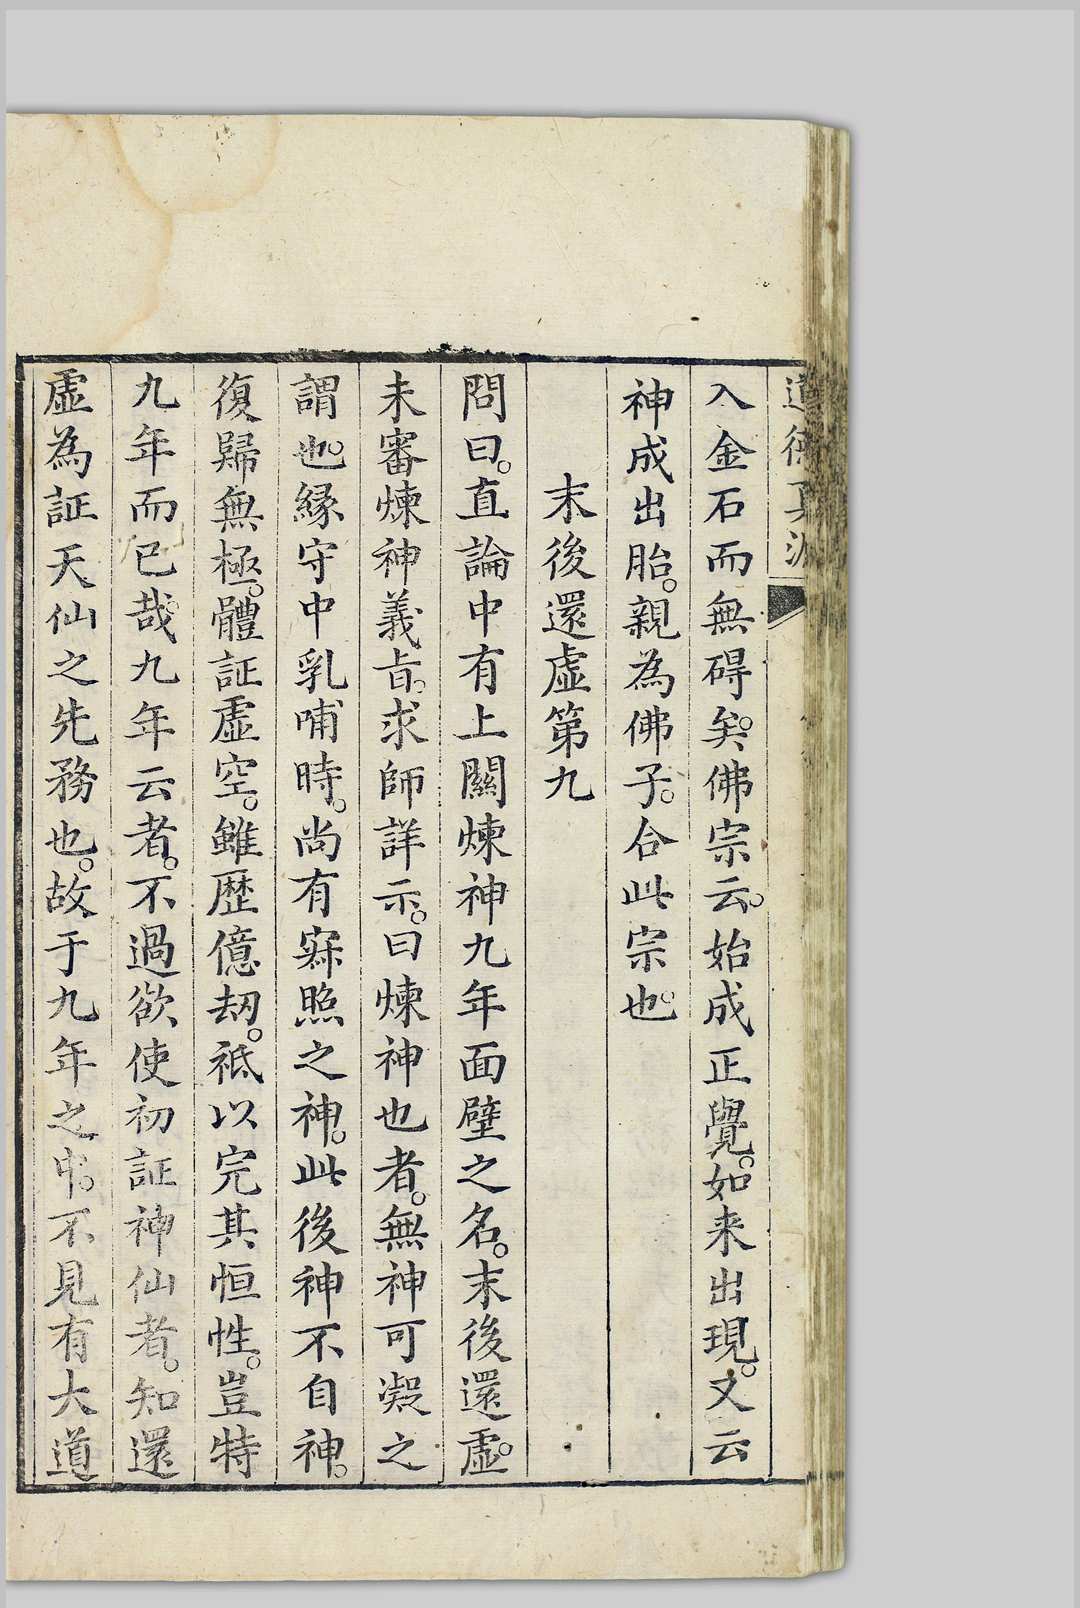 道德真源
入金石而無碍矣。佛宗云。始成正覺。如来出現。又云
神成出胎。親為佛子。合此宗也。
末後還虛第九
問曰。直論中有上關煉神九年面壁之名。末後還虛。
未審煉神義旨。求師詳示。曰煉神也者。無神可凝之
謂也。緣守中乳哺時。尚有寂照之神。此後神不自神。
復歸無極。體証虛空。雖歷億劫。祗以完其恒性。豈特
九年而已哉。九年云者。不過欲使初証神仙者。知還
虛為証天仙之先務也。故于九年之中。不見有大道